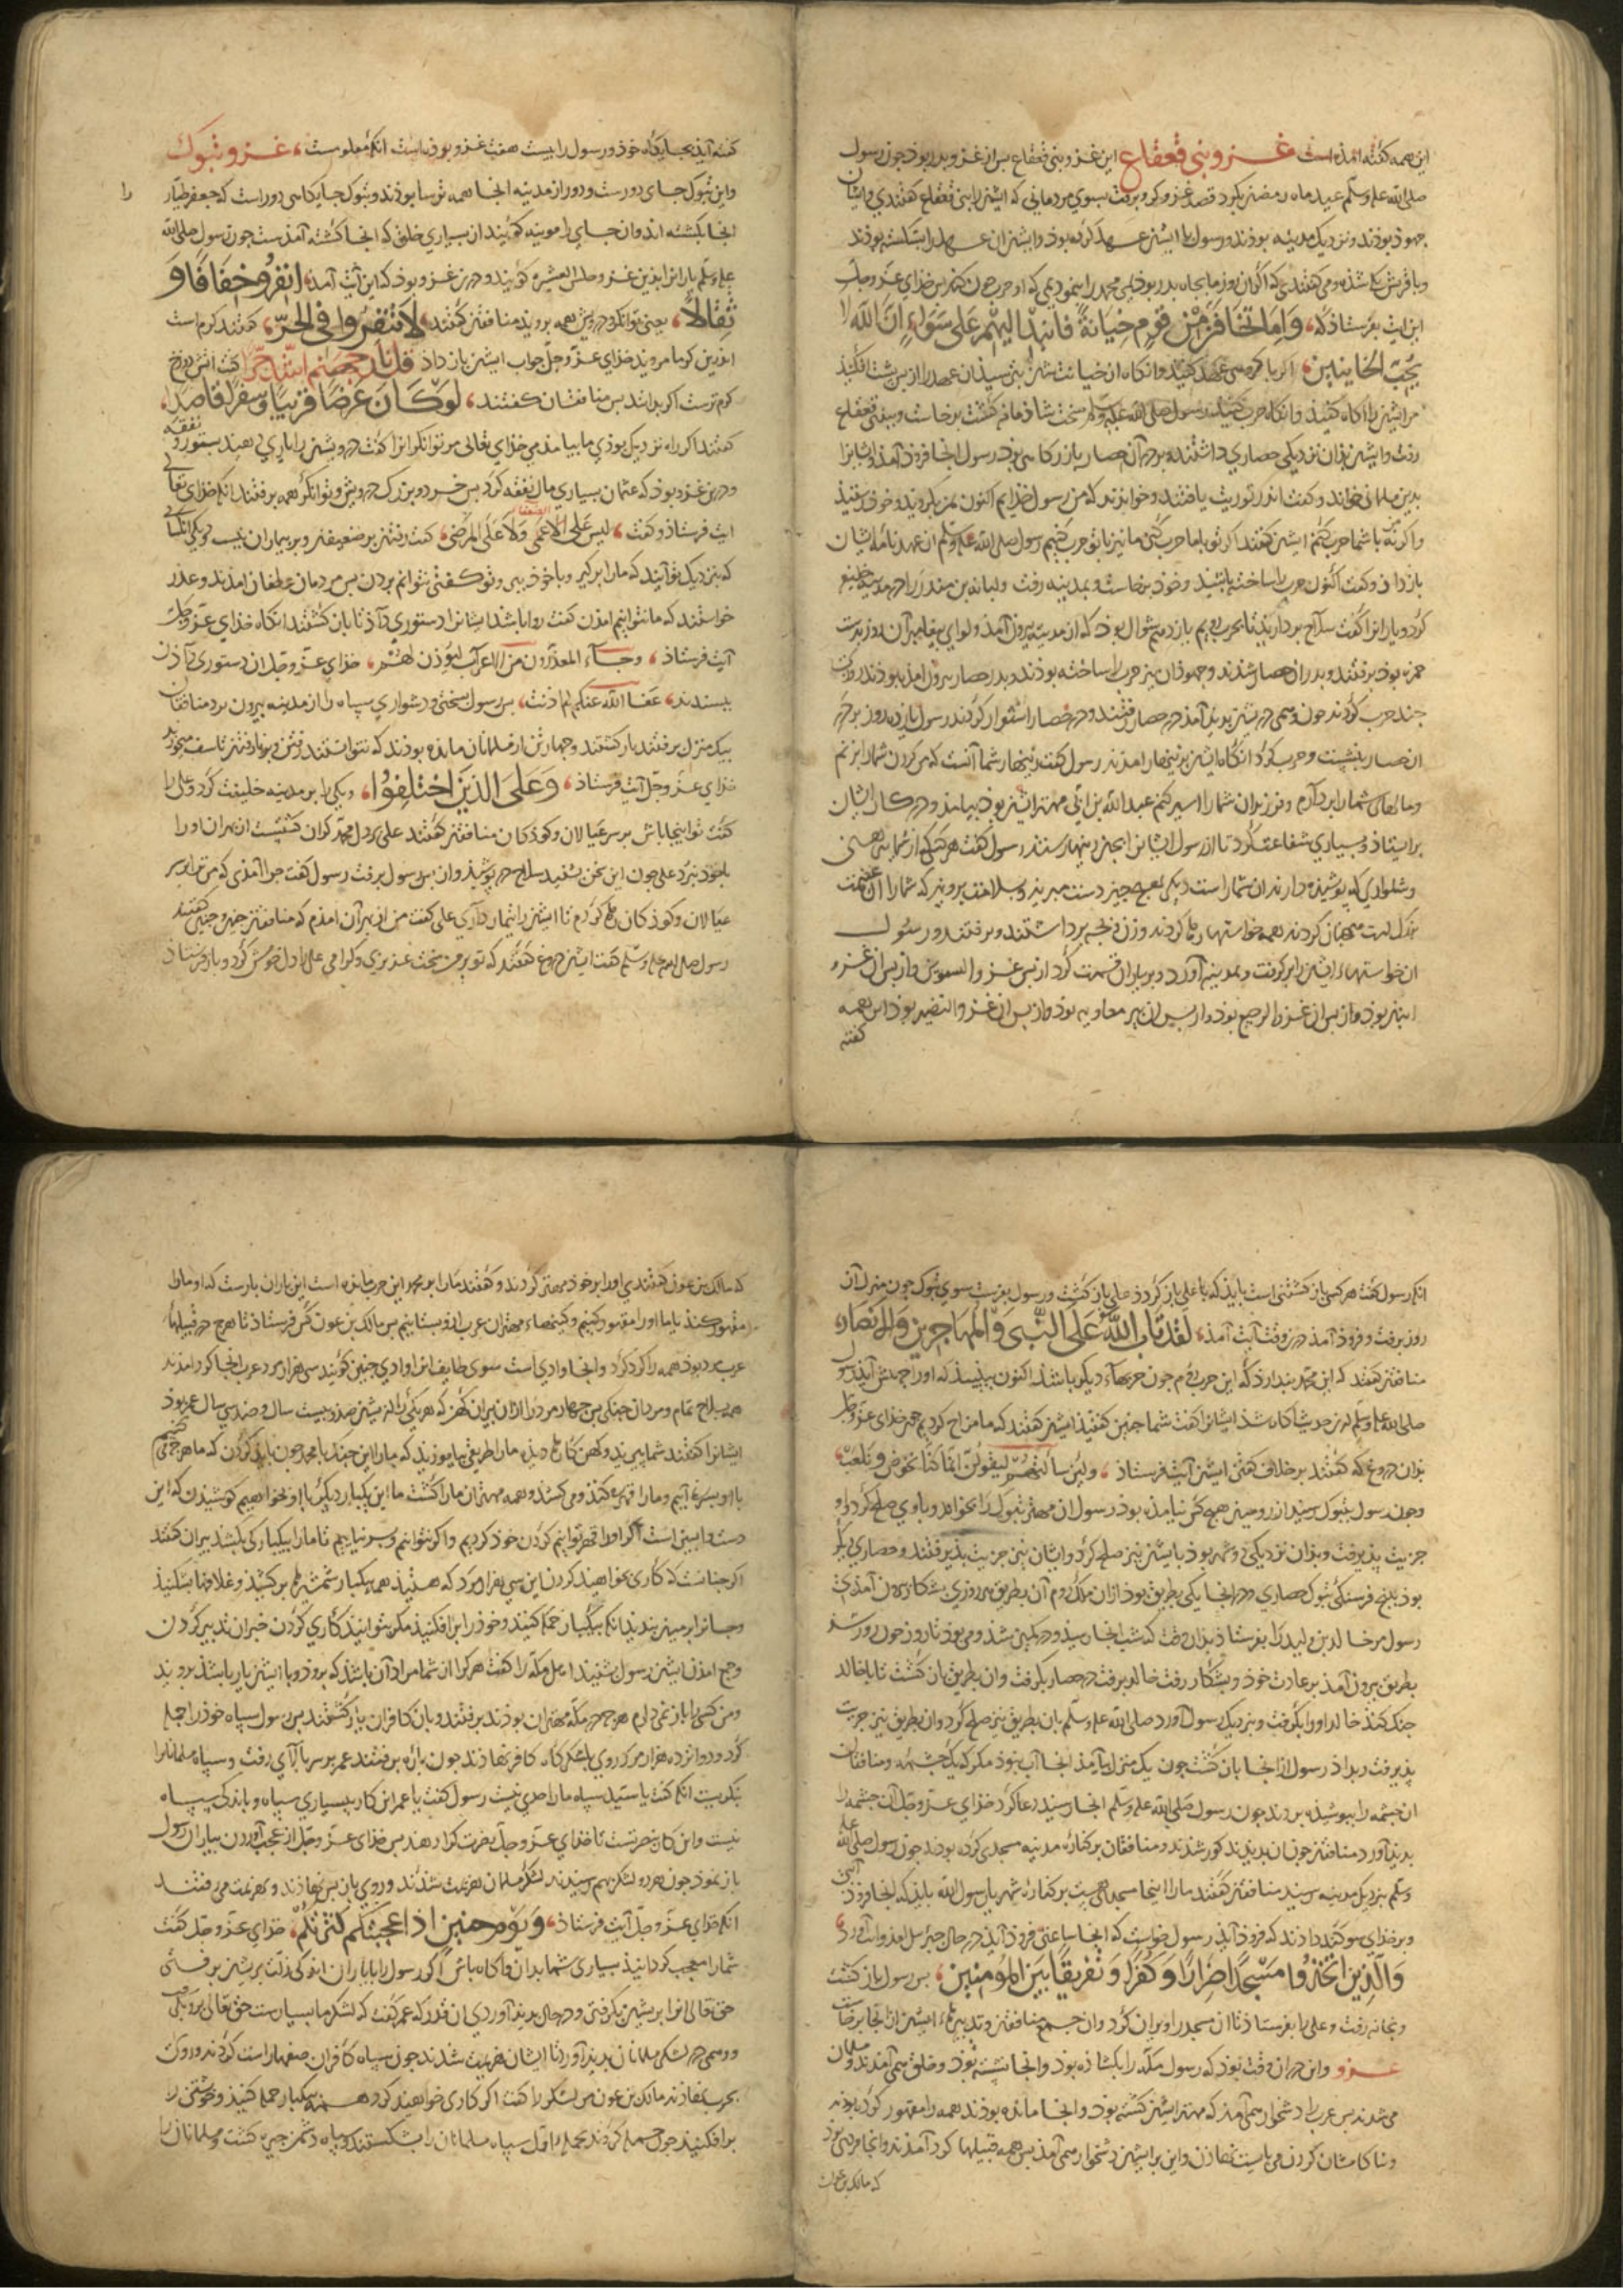 این همه گفته آمذه است غزو بنی قعقاع این غزو بنی قعقاع بس از غزو بدر بوذ جون رسول
صلی الله علیه وسلم عید ماه رمضان بکرد قصد غزو کرد و برفت بسوی مردمانی که ایشانرا بنی قعقاع گفتندی و ایشان
جهوذ بوذند و نزدیک مدینه بوذند و رسول با ایشان عهد کرده بوذ و ایشان ان عهد را بشکسته بوذند
و با قریش یکی شذه و می گفتندی که اگر ان روز ما بجاه بدر بوذیمی محمد را بنموذیمی که او حرب جون کند بس خذای عز وجل
این ایت بفرستاذ که وَاِمَّا تَخَافَنَّ مِنْ قَوْمٍ خِیَانَةً فَانْبِذْ اِلَیْهِمْ عَلَی سَوَاءٍ اِنَّ اللهَ لا
یُحِبُّ الْخَایِنِینَ اکر با کروهی عهد کنید و انکاه از خیانت شان بترسید ان عهد را از بس بشت افکنید
مر ایشان را اکاه کنید و انکاه حرب کنید رسول صلی الله علیه وسلم سخت شاذمانه کشت برخاست و ببنی قعقاع
رفت و ایشان بذان نزدیکی حصاری داشتند و بر در آن حصار بازرکاهی بوذ رسول انجا فروذ آمذ و ایشانرا
بدین مسلمانی خواند و کفت اندر توریت یافتند و خوانزند که من رسول خذایم اکنون بمن بکروید و خون
و اکر نه با شما حرب کنم ایشان کفتند اکر تو با ما حرب کنی ما نیز با تو حرب کنیم رسول صلی الله علیه وسلم ان عهد نامه ایشان
باز داذ و کفت اکنون حرب را ساخته باشید و خوذ برخاست و بمدینه رفت و لبابه بن منذر را در مدینه خلیفه
کرد و یارانرا کفت سلاح بردارید تا بحرب رویم بازدهم شوال بوذ که از مدینه بیرون آمذ و لوای بیغامبر آن روز بدست
حمزه بوذ برفتند و بدر ان حصار شذند و جهوذان نیز حرب را ساخته بوذند و بدر حصار بیرون امذه بوذند
جند حرب کردند جون وهمی در بیشتر بدید آمذ در حصار رفتند و در حصار استوار کردند رسول بانزده روز بر در
ان حصار بنشست و حرب کرد انکاه ایشان بزینهار امذند رسول کفت زینهار شما آنست که من کردن شما بزنم
و مالهای شما بردارم و فرزندان شما را اسیر کنم عبد الله بن ابی مهتر ایشان بوذ بیامذ و در کار ایشان
بر ایستاذ و بسیاری شفاعت کرد تا از رسول ایشانرا بجان زینهار ستد رسول کفت هر کسی از شما بیرهنی
و شلواری که بوشیذه دارند ان شما راست دیکر بهیج جیز دست مبرید و بسلامت بروید که شما را ان غنیمت
بزرک است همجنان کردند همه خواستها رها کردند و زن و بجه برداشتند و برفتند و رسول
ان خواستهاء ایشان را برکرفت و بمدینه آورد و بر یاران قسمت کرد از بس غزو السویق و از بس ان غزو
ابتر بوذ و از بس ان غزو الرجیع بوذ و از بس ان بیر معاویه بوذ و از بس ان غزو النضیر بوذ این همه
کفته
کفته آید بجایکاه خوذ و رسول را بیست هفت غزو بوذه است انکه معلومست غزو تبوک
و این تبوک جای دورست و دور از مدینه انجا همه ترسا بوذند و تبوک جایکاهی دور است که جعفر طیار را
انجا بکشته اند و ان جای را موته کویند از بسیاری خلق که انجا کشته آمذست جون رسول صلی الله
علیه وسلم یارانرا بذین غزو جیش العسره کویند و درین غزو بوذ که این آیت آمذ اِنْفِرُوا خِفَافًا وَ
ثِقَالاً یعنی توانکر و درویش همه بروید منافقان کفتند لا تَنْفِرُوا فِی الْحَرِّ کفتند کرم است
اندرین کرما مروید خذای عز وجل جواب ایشان باز داذ قل نار جهنم اشد حرا کفت اتش دوزخ
کرم ترست اکر بدانند بس منافقان کفتند لَوْ کَانَ عَرَضًا قَرِیبًا وَسَفَرًا قَاصِدًا
کفتند اکر راه نزدیک بوذی ما بیامذیمی خذای تعالی مر توانکرانرا کفت درویشان را یاری دهند بستور و نفقه
و درین غزو بوذ که عثمان بسیاری مال نفقه کرد بس خرد و بزرک درویش و توانکر همه برفتند انکه خذای تعالی
ایت فرستاذ و کفت لیس علی الضعفا الاعمی ولا علی المرضی کفت رفتن بر ضعیفان و بر بیماران نیست و دیکر انکسانی
که بنزدیک تو آیند که ما را برکیر و با خوذ ببر و تو کفتی نتوانم بردن بس مردمان غطفان امذند و عذر
خواستند که ما نتوانیم امذن کفت روا باشد ایشانرا دستوری داذ تا باز کشتند انکاه خذای عز وجل
آیت فرستاذ وجآء المعذرون من الاعراب لیوذن لهم خذای عز وجل ان دستوری داذن
ببسندند عفا الله عنک لم اذنت بس رسول بسختی و دشواری سباه را از مدینه بیرون برد منافقان
بیک منزل برفتند باز کشتند و جهار تن از مسلمانان مانده بوذند که نتوانستند رفتن و بر نارفتن تاسف میخوردند
خذای عز وجل آیت فرستاذ وَعَلَی الَّذِینَ اخْتَلِفُوا ویکی را بر مدینه خلیفت کرد و علی را
کفت تو اینجا باش بر سر عیالان و کوذکان منافقان کفتند علی بر دل محمد کران کشتست از بهر ان او را
با خوذ نبرد علی جون این سخن بشنید سلاح در بوشید و از بس رسول برفت رسول کفت جرا آمذی که من ترا بر سر
عیالان و کوذکان رها کردم تا ایشان را تیمار داری علی کفت من از بهر آن امذم که منافقان جنین و جنین کفتند
رسول صلی الله علیه وسلم کفت ایشان دروغ کفتند که تو بر من سخت عزیزی و کرامی علی را دل خوش کرد و باز فرستاذ
انکه رسول کفت هر کسی باز کشتنی است بایذ که با علی باز کردد علی باز کشت و رسول برفت سوی تبوک جون منزل آن
روز برفت و فروذ آمذ در وقت آیت آمذ لَقَدْ تَابَ اللهُ عَلَی النَّبِیِّ وَالْمُهَاجِرِینَ وَالْاَنْصَارِ
منافقان کفتند که این محمد بندارد که این حرب روم جون حربهاء دیکر باشد اکنون ببینید که او را جه بیش آید رسول
صلی الله علیه وسلم ازین حدیث اکاه شذ ایشانرا کفت شما جنین کفتید ایشان کفتند که ما مزاح کردیم خذای عز وجل
بذان دروغ که کفتند بر خلاف کفتن ایشان آیت فرستاذ ولئن سألتهم لیقولن انما کنا نخوض ونلعب
و جون رسول بتبوک رسید از رومیان هیج کس نیامذه بوذ رسول ان مهتر تبوک را بخواند و با وی صلح کرد و او
جزیت بذیرفت و بذان نزدیکی دو شهر بوذ با ایشان نیز صلح کرد و ایشان نیز جزیت بذیرفتند و حصاری دیکر
بوذ بنج فرسنکی تبوک حصاری و در انجا یکی بطریق بوذ ازان ملک روم آن بطریق هر روزی بشکار بیرون آمذی
رسول مر خالد بن ولید را بفرستاذ بذان وقت که شب انجا رسید و در کمین شذ و می بوذ تا روز جون روز شذ
بطریق بیرون آمذ بر عادت خوذ و بشکار رفت خالد برفت در حصار بکرفت و ان بطریق باز کشت تا با خالد
جنک کند خالد او را بکرفت و بنزدیک رسول آورد صلی الله علیه وسلم بان بطریق نیز صلح کرد وان بطریق نیز جزیت
بذیرفت و بداذ رسول از انجا باز کشت جون یک منزل بیامذ انجا آب نبوذ مکر که یک جشمه و منافقان
ان جشمه را ببوشیذه بوذند جون رسول صلی الله علیه وسلم انجا رسید دعا کرد خذای عز وجل آن جشمه را
بدید آورد منافقان جون ان بدیدند کور شذند و منافقان بر کناره مدینه مسجدی کرده بوذند جون رسول صلی الله علیه
وسلم بنزدیک مدینه رسید منافقان کفتند ما را اینجا مسجدی هست بر کناره شهر یا رسول الله بایذ که انجا فروذ آیی
و بر خذای سوکند داذند که فروذ آیذ رسول خواست که انجا ساعتی فروذ آید در حال جبرئیل امذ و ایت آورد
وَالَّذِینَ اتَّخَذُوا مَسْجِدًا ضِرَارًا وَکُفْرًا وَتَفْرِیقًا بَیْنَ الْمُؤْمِنِینَ بس رسول باز کشت
و بخانه رفت و علی را بفرستاذ تا ان مسجد را ویران کرد وان جمع منافقان و تدبیرهاء ایشان از انجا برخاست
غزو واین در ان وقت بوذ که رسول مکه را بکشاذه بوذ و انجا نشسته بوذ و خلق همی آمذند و مسلمان
می شدند بس عرب را دشخوار همی آمذ که مهتر ایشان کشته بوذ و انجا مانده بوذند همه را مقهور کرده بوذند
و ناکامشان کردن می بایست نهاذن و این بر ایشان دشخوار همی آمذ بس همه قبیلها کرد آمذند و انجا مردی بوذ
که مالک بن عون
که مالک بن عون کفتندی او را بر خوذ مهتر کردند و کفتند ما را بر محمد این حرب مانده است این باران بارست که او ما را
مقهور کند یا ما او را مقهور کنیم و کینهاء مهتران عرب از و بستانیم بس مالک بن عون کس فرستاذ تا هرج در قبیلهاء
عرب مرد بوذ همه را کرد کرد و انجا وادی است سوی طایف انرا وادی حنین کویند سی هزار مرد عرب انجا کرد امذند
همه بسلاح تمام و مردان جنکی بس جهار مرد را ازان بیران کهن که هر یکی را از ایشان صذ و بیست سال و صذ و سی سال عمر بوذ
ایشانرا کفتند شما بیرید و کهن کارها دیذه ما را طریقی بیاموزید که ما را این جنک با محمد جون باید کردن که ما هر جند کی
با او بستیزه آییم و ما را قهر می کند و می کشد و همه مهتران ما را کشت ما این یکبار دیکر با او بخواهیم کوشیذن که این
دست وابسین است اکر او را قهر توانیم کردن خوذ کردیم و اکر نتوانیم و بر نیاییم تا ما را بیکبارکی بکشند بیران کفتند
اکر جنانست که کاری بخواهید کردن این سی هزار مرد که هستید همه بیکبار شمشیرها بر کشید و غلافها بشکنید
و جانرا بر میان بندید انکه بیکبار حمله کنید و خوذ را بر افکنید مکر بتوانید کاری کردن خبر ان تدبیر کردن
و جمع امذن ایشان رسول بشنید اهل مکه را کفت هر که را از شما مراد آن باشد که بروذ و با ایشان یار باشد بروید
و من کس را باز نمی دارم هرجه در مکه مهتران بوذند برفتند و بان کافران یار کشتند بس رسول سباه خوذ را جمله
کرد و دوانزده هزار مرد کرد روی بلشکرکاه کافر نهاذند جون باره برفتند عمر بر سر بالای رفت و سباه مسلمانانرا
بنکریست انکه کفت یا سید سباه ما را حدی نیست رسول کفت یا عمر این کار ببسیاری سباه و باندکی سباه
نیست و این کار بنصرتست تا خذای عز وجل نصرت کرا دهد بس خذای عز وجل از عجب آوردن یاران رسول
باز نموذ جون هر دو لشکر بهم رسیدند لشکر مسلمانان بهزیمت شذند و روی باز بس نهاذند و بهزیمت می رفتند
انکه خذای عز وجل آیت فرستاذ وَیَوْمَ حُنَیْنٍ اِذْ اَعْجَبَتْکُمْ کَثْرَتُکُمْ خذای عز وجل کفت
شما را معجب کردانید بسیاری شما بدان و اکاه باش اکر رسول را با یاران اندکی ذلت بر ایشان برفتی
حق تعالی انرا بر ایشان بکرفتی و در حال بدید آوردی ان قدر که عمر کفت که لشکر ما بسیارست حق تعالی
و وهمی در لشکر مسلمانان بدید آورد تا ایشان بهزیمت شذند جون سباه کافران صفها راست کردند و روی
بحرب نهاذند مالک بن عون مر لشکر را کفت اکر کاری خواهید کرد همه بیکبار حمله کنید و خویشتن را
بر افکنید جون حمله کردند بحمله اول سباه مسلمانان را بشکستند و سباه دشمن جیره کشت و مسلمانان را